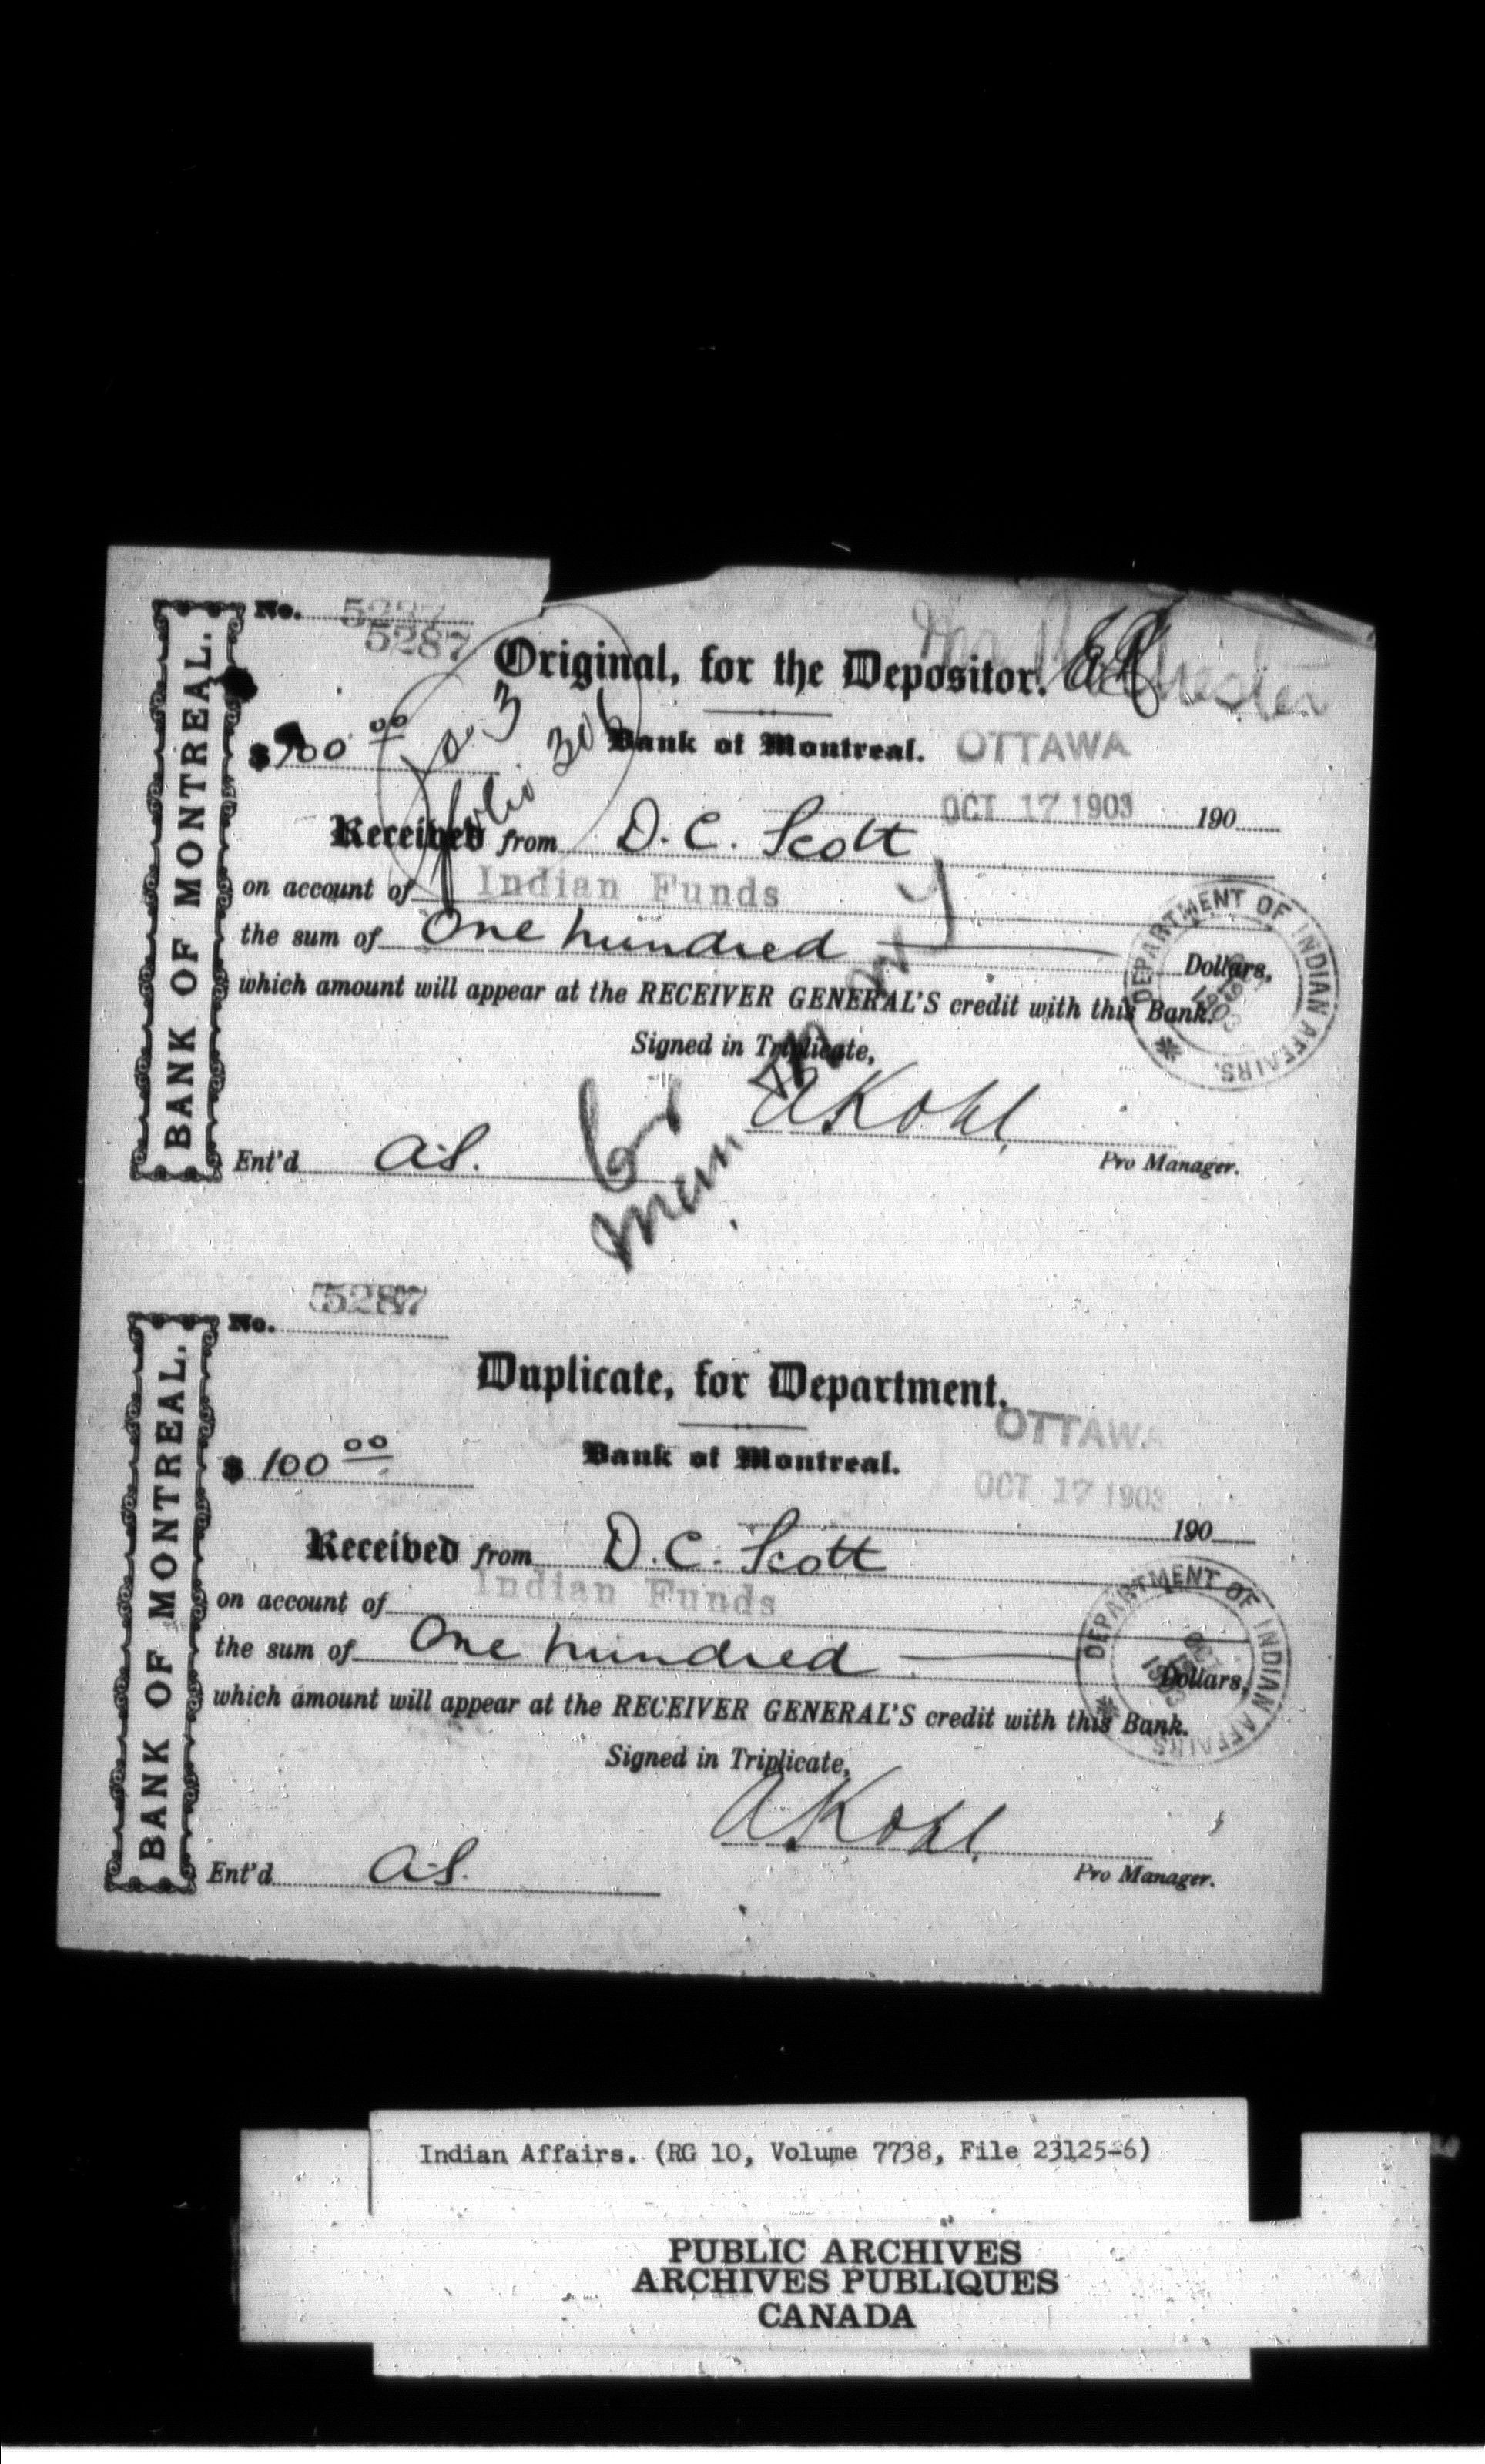 BANK OF MONTREAL.
No. 5287
5287
Original, for the Depositor.
$100 00
Bank of Montreal. OTTAWA
OCT 17 1903 190
folio 306
Received from D. C. Scott
on account of Indian Funds
the sum of One hundred Dollars,
which amount will appear at the RECEIVER GENERAL'S credit with this Bank.
DEPARTMENT OF INDIAN AFFAIRS.
OCT 1903
Signed in Triplicate,
A. Kohl
Ent'd A.S. Pro Manager.
BANK OF MONTREAL.
No. 5287
Duplicate, for Department.
OTTAWA
$ 100 00
Bank of Montreal.
OCT 17 1903
190
Received from D. C. Scott
on account of Indian Funds
the sum of One hundred Dollars,
which amount will appear at the RECEIVER GENERAL'S credit with this Bank.
DEPARTMENT OF INDIAN AFFAIRS.
OCT 1903
Signed in Triplicate,
A. Kohl
Ent'd A.S. Pro Manager.
Indian Affairs. (RG 10, Volume 7738, File 23125-6)
PUBLIC ARCHIVES
ARCHIVES PUBLIQUES
CANADA